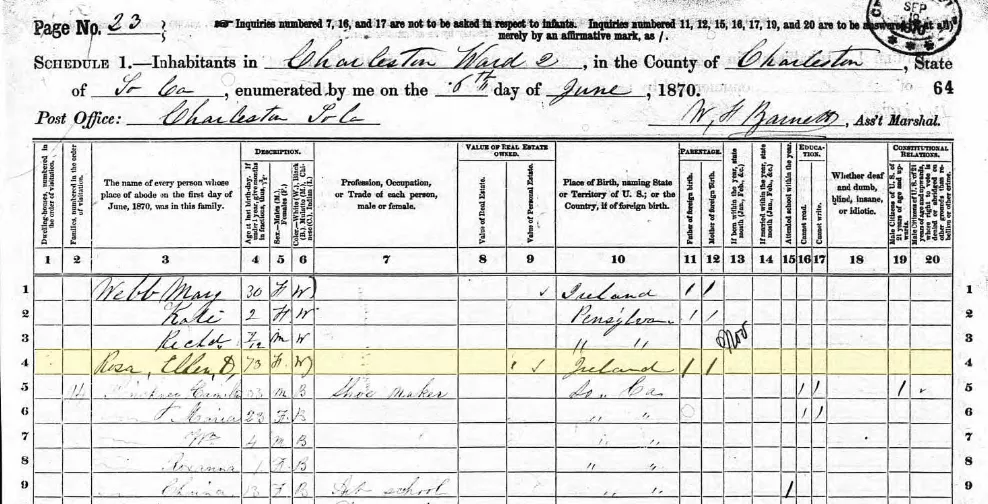 Page No. 23
☞ Inquiries numbered 7, 16, and 17 are not to be asked in respect to infants. Inquiries numbered 11, 12, 15, 16, 17, 19, and 20 are to be answered (if at all)
merely by an affirmative mark, as /.
SEP
1870
SCHEDULE 1.—Inhabitants in Charleston Ward 2, in the County of Charleston, State
of So Ca, enumerated by me on the 6th day of June, 1870. 64
Post Office: Charleston So Ca W, H Barnett, Ass't Marshal.
Dwelling-houses, numbered in the order of visitation.
Families, numbered in the order of visitation.
The name of every person whose place of abode on the first day of June, 1870, was in this family.
DESCRIPTION.
Age at last birth-day. If under 1 year, give months in fractions, thus
Sex.—Males (M.), Females (F.)
Color.—White (W.), Black (B.), Mulatto (M.), Chinese (C.), Indian (I.)
Profession, Occupation, or Trade of each person, male or female.
VALUE OF REAL ESTATE OWNED.
Value of Real Estate.
Value of Personal Estate.
Place of Birth, naming State or Territory of U. S.; or the Country, if of foreign birth.
PARENTAGE.
Father of foreign birth.
Mother of foreign birth.
If born within the year, state month (Jan., Feb., &c.)
If married within the year, state month (Jan., Feb., &c.)
EDUCATION.
Attended school within the year.
Cannot read.
Cannot write.
Whether deaf and dumb, blind, insane, or idiotic.
CONSTITUTIONAL RELATIONS.
Male Citizens of U. S. of 21 years of age and upwards.
1 2 3 4 5 6 7 8 9 10 11 12 13 14 15 16 17 18 19 20
1 Webb Mary 30 F W Ireland / / 1
2 Kate 2 F W Pensylvan / / 2
3 Richd 7/12 M W " " Nov 3
4 Rosa, Ellen, D, 73 F W Ireland / / 4
5 M B Shoe maker So.. Ca / / / 5
6 23 F B " " / / 6
7 Wm 4 M B " " 7
8 Roxanna 1 F B " " 8
9 13 F B school " " / 9